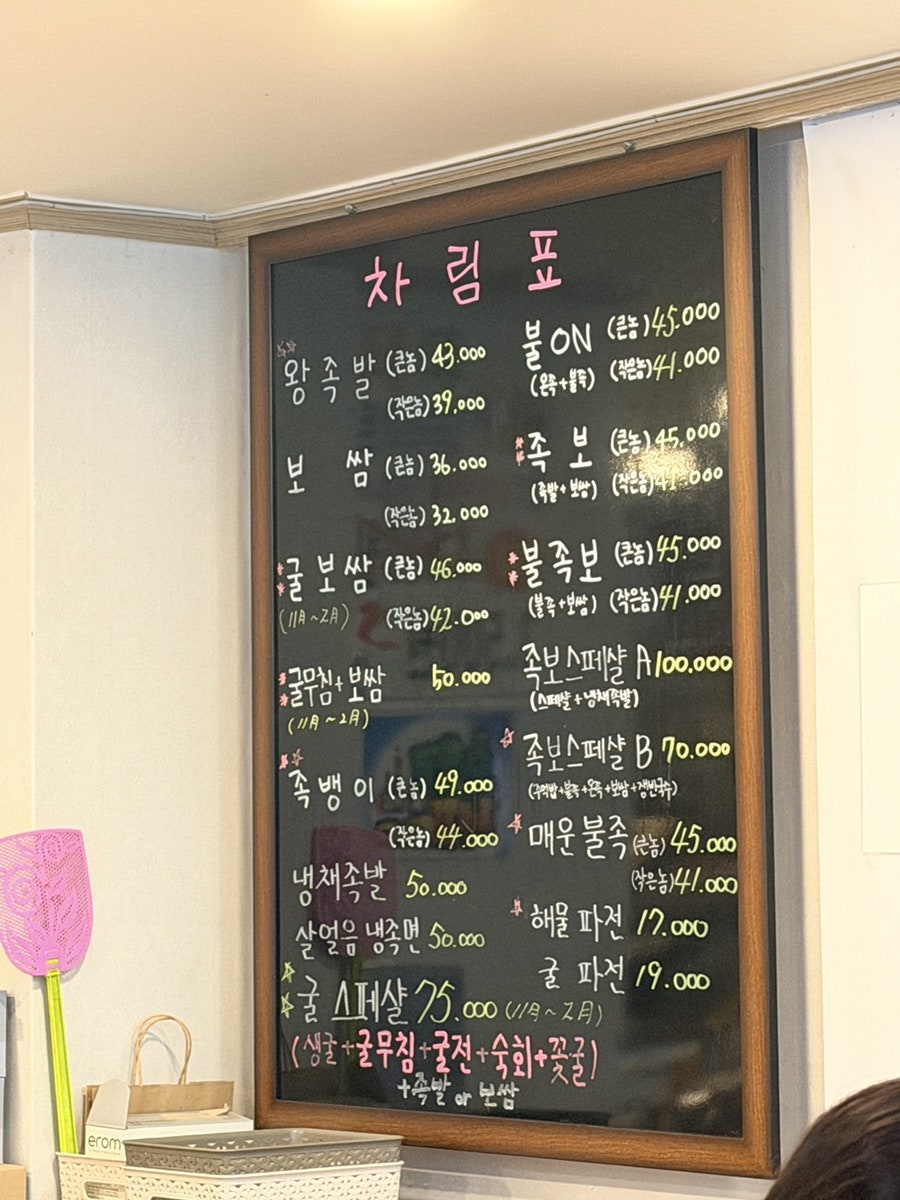 차림표
왕족발 (큰놈) 43.000
(작은놈) 39.000
보쌈 (큰놈) 36.000
(작은놈) 32.000
굴보쌈 (큰놈) 46.000
(11月~2月) (작은놈) 42.000
굴무침+보쌈 50.000
(11月~2月)
족뱅이 (큰놈) 49.000
(작은놈) 44.000
냉채족발 50.000
살얼음 냉족면 50.000
굴 스페샬 75.000 (11月~2月)
(생굴+굴무침+굴전+숙회+꽃굴)
+족발 or 보쌈
불ON (큰놈) 45.000
(온족+불족) (작은놈) 41.000
족보 (큰놈) 45.000
(족발+보쌈) (작은놈) 41.000
불족보 (큰놈) 45.000
(불족+보쌈) (작은놈) 41.000
족보스페샬 A 100.000
(스페샬+냉채족발)
족보스페샬 B 70.000
(주먹밥+불족+온족+보쌈+쟁반국수)
매운불족 (큰놈) 45.000
(작은놈) 41.000
해물파전 17.000
굴 파전 19.000
erom